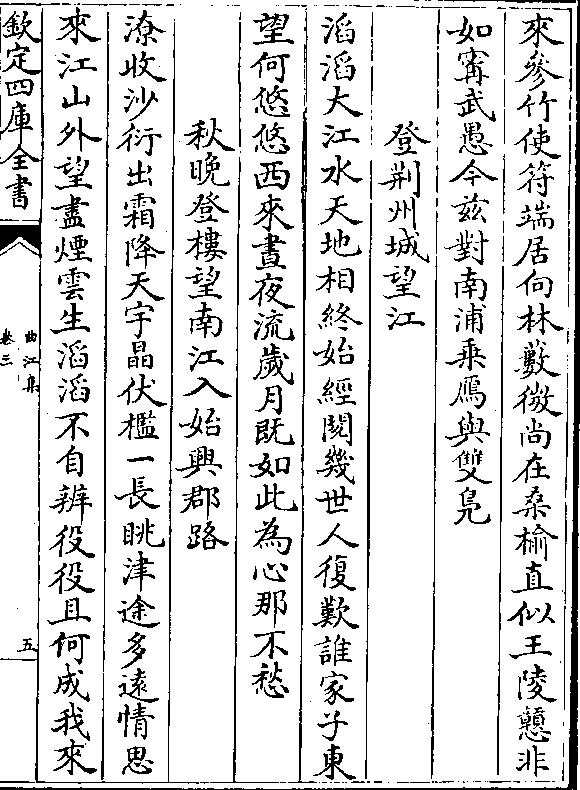 來參竹使符端居向林藪微尚在桑榆直似王陵戇非
如甯武愚今茲對南浦乗鴈與雙鳬
登荆州城望江
滔滔大江水天地相終始經閲幾世人復歎誰家子東
望何悠悠西來晝夜流歲月既如此為心那不愁
秋晚登樓望南江入始興郡路
潦收沙衍出霜降天宇晶伏檻一長眺津途多逺情思
來江山外望盡煙雲生滔滔不自辨役役且何成我來
欽定四庫全書
曲江集
卷三
五